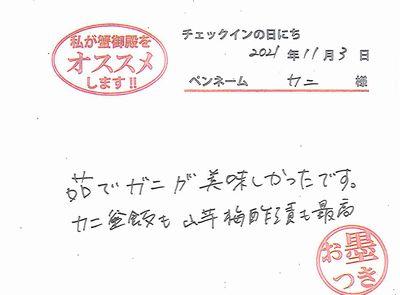 私が蟹御殿を
オススメ
します!!
チェックインの日にち
2021年11月3日
ペンネーム カニ 様
茹でガニが美味しかったです。
カニ釜飯も山芋梅酢漬も最高
お墨
つき